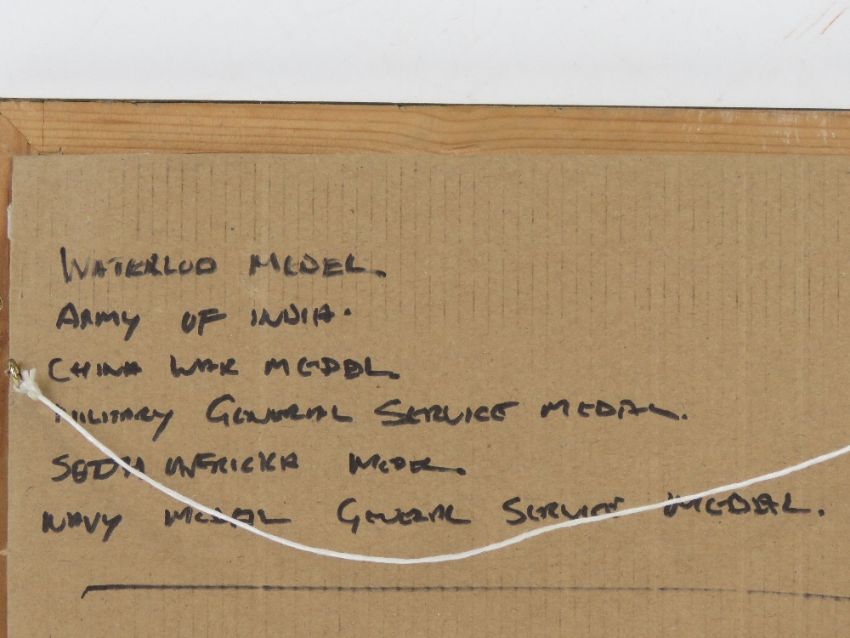 WATERLOO MEDEL.
ARMY OF INDIA.
CHINA WAR MEDEL.
MILITARY GENERAL SERVICE MEDAL.
SOUTH AFRICKA MEDEL.
NAVY MEDAL GENERAL SERVICE MEDAL.